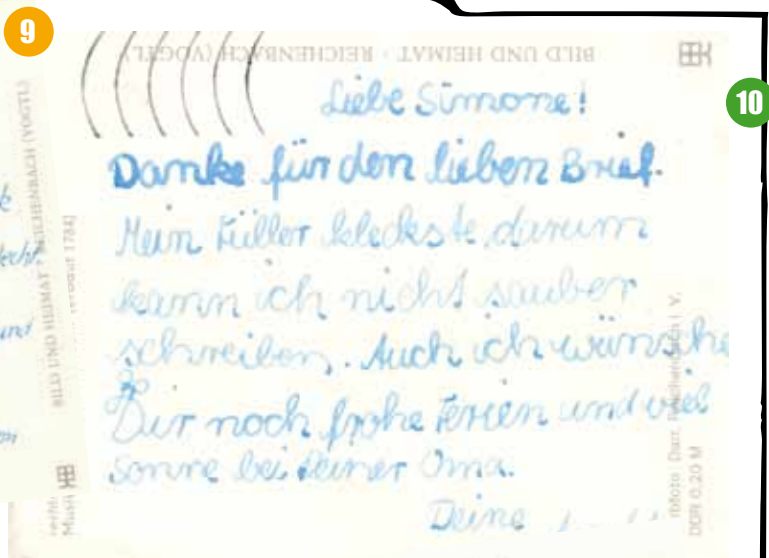 9
BILD UND HEIMAT · REICHENBACH (VOGTL)
10
Liebe Simone!
Danke für den lieben Brief.
Mein Füller kleckste darum
kann ich nicht sauber
schreiben. Auch ich wünsche
Dir noch frohe Ferien und viel
Sonne bei Deiner Oma.
Deine
BILD UND HEIMAT REICHENBACH (VOGTL)
1784)
und
DDR 0,20 M